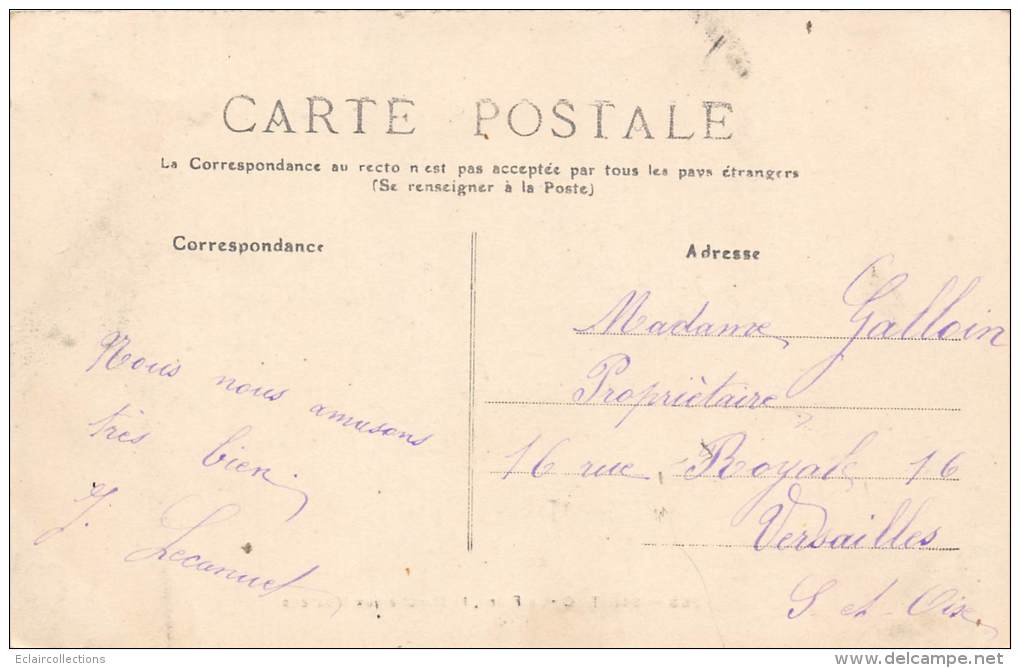 CARTE POSTALE
La Correspondance au recto n'est pas acceptée par tous les pays étrangers
(Se renseigner à la Poste)
Correspondance
Nous nous amusons
très bien.
J. Lecanuet
Adresse
Madame Galloin
Propriètaire
16 rue Royale 16
Versailles
S et Oise
Eclaircollections
www.delcampe.net